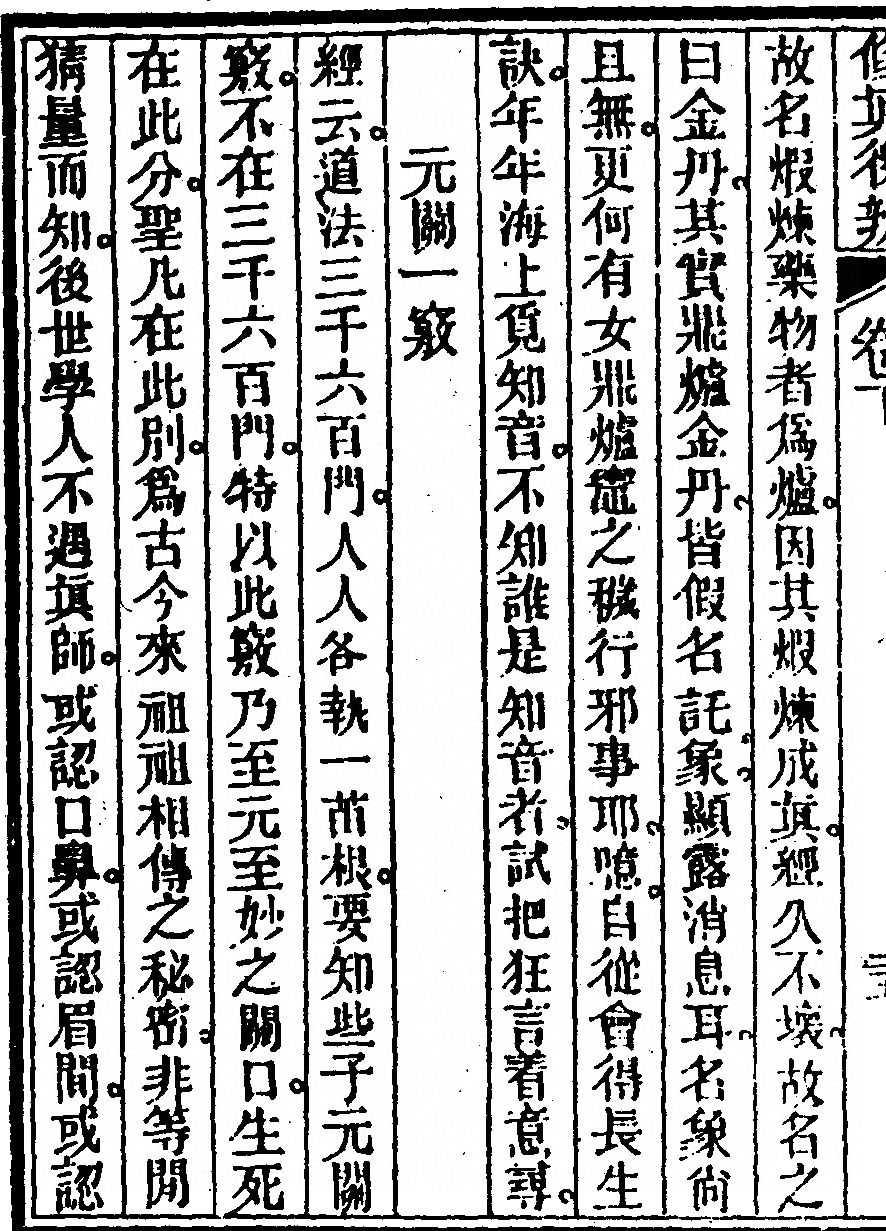 修眞後辨 卷下
故名煅煉藥物者爲爐。因其煅煉成眞。經久不壞。故名之
曰金丹。其實鼎爐金丹。皆假名託象。顯露消息耳。名象尚
且無。更何有女鼎爐竈之穢行邪事耶。噫。自從會得長生
訣。年年海上覓知音。不知誰是知音者。試把狂言着意尋。
元關一竅
經云。道法三千六百門。人人各執一苗根。要知些子元關
竅。不在三千六百門。特以此竅乃至元至妙之關口。生死
在此分。聖凡在此別。爲古今來祖祖相傳之秘密。非等閒
猜量而知。後世學人不遇眞師。或認口鼻。或認眉間。或認